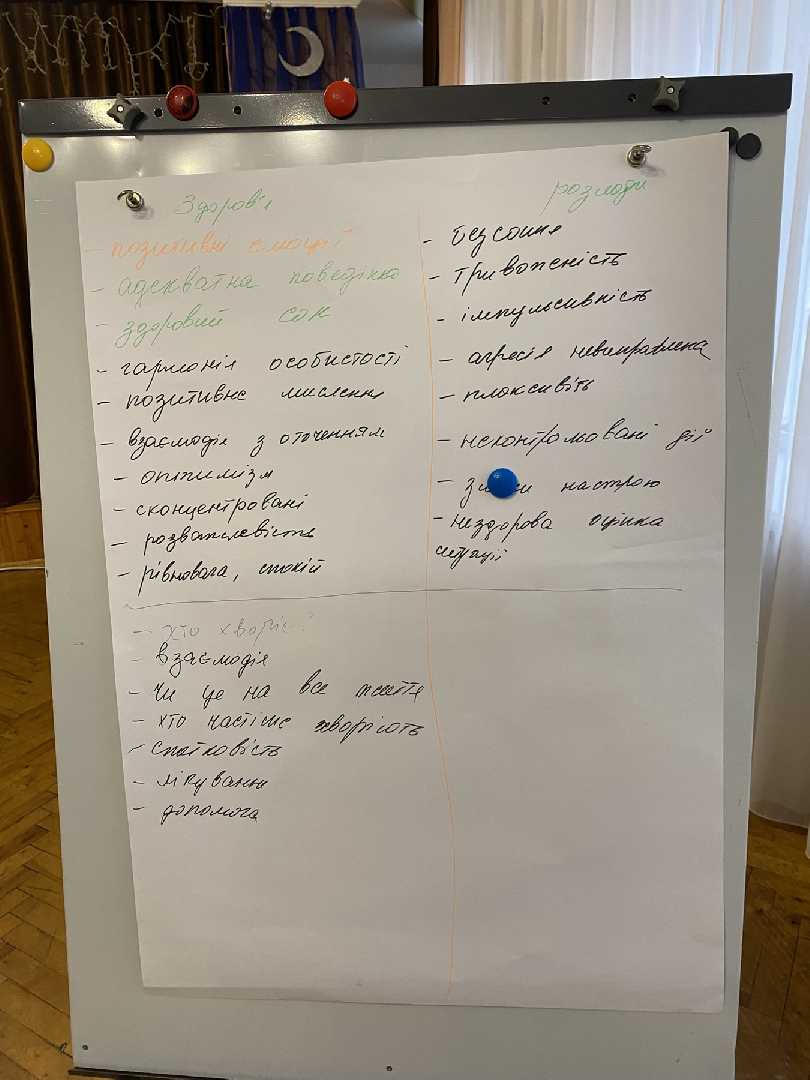 Здоров'я
- позитивні емоції
- адекватна поведінка
- здоровий сон
- гармонія особистості
- позитивне мислення
- взаємодія з оточенням
- оптимізм
- сконцентровані
- розважливість
- рівновага, спокій
розлади
- безсоння
- тривожність
- імпульсивність
- агресія невиправдана
- плаксивіть
- неконтрольовані дії
- настрою
- нездорова оцінка
ситуації
- хто хворіє?
- взаємодія
- Чи це на все життя
- хто частіше хворіють
- спатковість
- лікування
- допомога